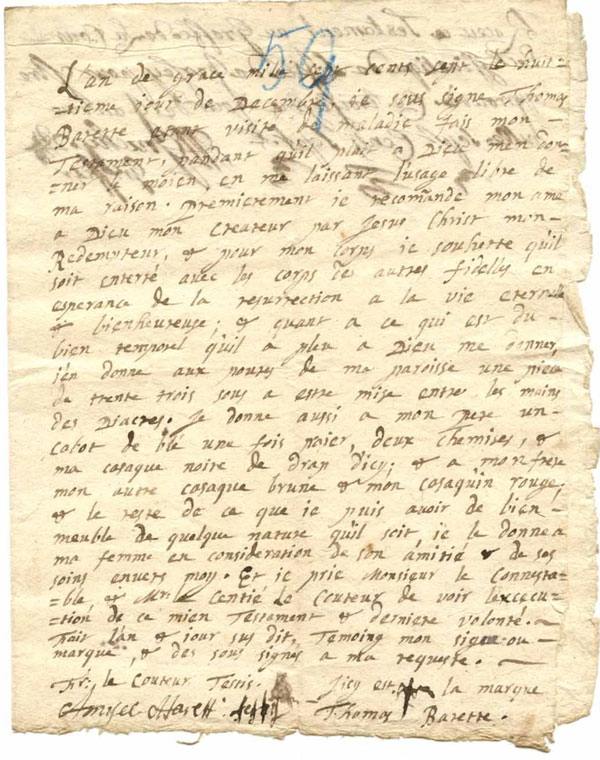 59
L'an de grace mille sept cents sept le huit-
-tieme jour de Decembre, ie sous signe Thomas
Barette ayant visite de maladie fais mon-
Testament, pandant qu'il plait a Dieu men don-
ner le moien, en me laissant l'usage libre de
ma raison. premierement ie recomande mon ame
a Dieu mon Createur par Jesus Christ mon-
Redempteur, & pour mon corps ie souhette qu'il
soit enterré avec les corps de autres fidelles en
esperance de la resurrection a la vie eternelle
& bienheureuse; & quant a ce qui est du-
bien temporel qu'il a pleu a Dieu me donner,
j'en donne aux povres de ma paroisse une piece
de trente trois sous a estre mise entre les mains
des Diacres. Je donne aussi a mon pere un-
cabot de blé une fois paier, deux chemises, &
ma casaque noire de drap dicy; & a mon frere
mon autre casaque brune & mon casaquin rouge;
& le reste de ce que ie puis avoir de bien-
meuble de quelque nature qu'il soit, ie le donne a
ma femme en consideration de son amitié & de ses
soins envers moy. Et ie prie Monsieur le Connesta-
-ble, & Mr. le Centié le Couteur de voir l'execu-
-tion de ce mien Testament & derniere volonté. ~
Fait l'an & jour sus dit, Temoing mon signe ou-
marque, & des sous signes a ma requeste. ~
le Couteur Testis. Jicy est la marque
Thomas Barette.